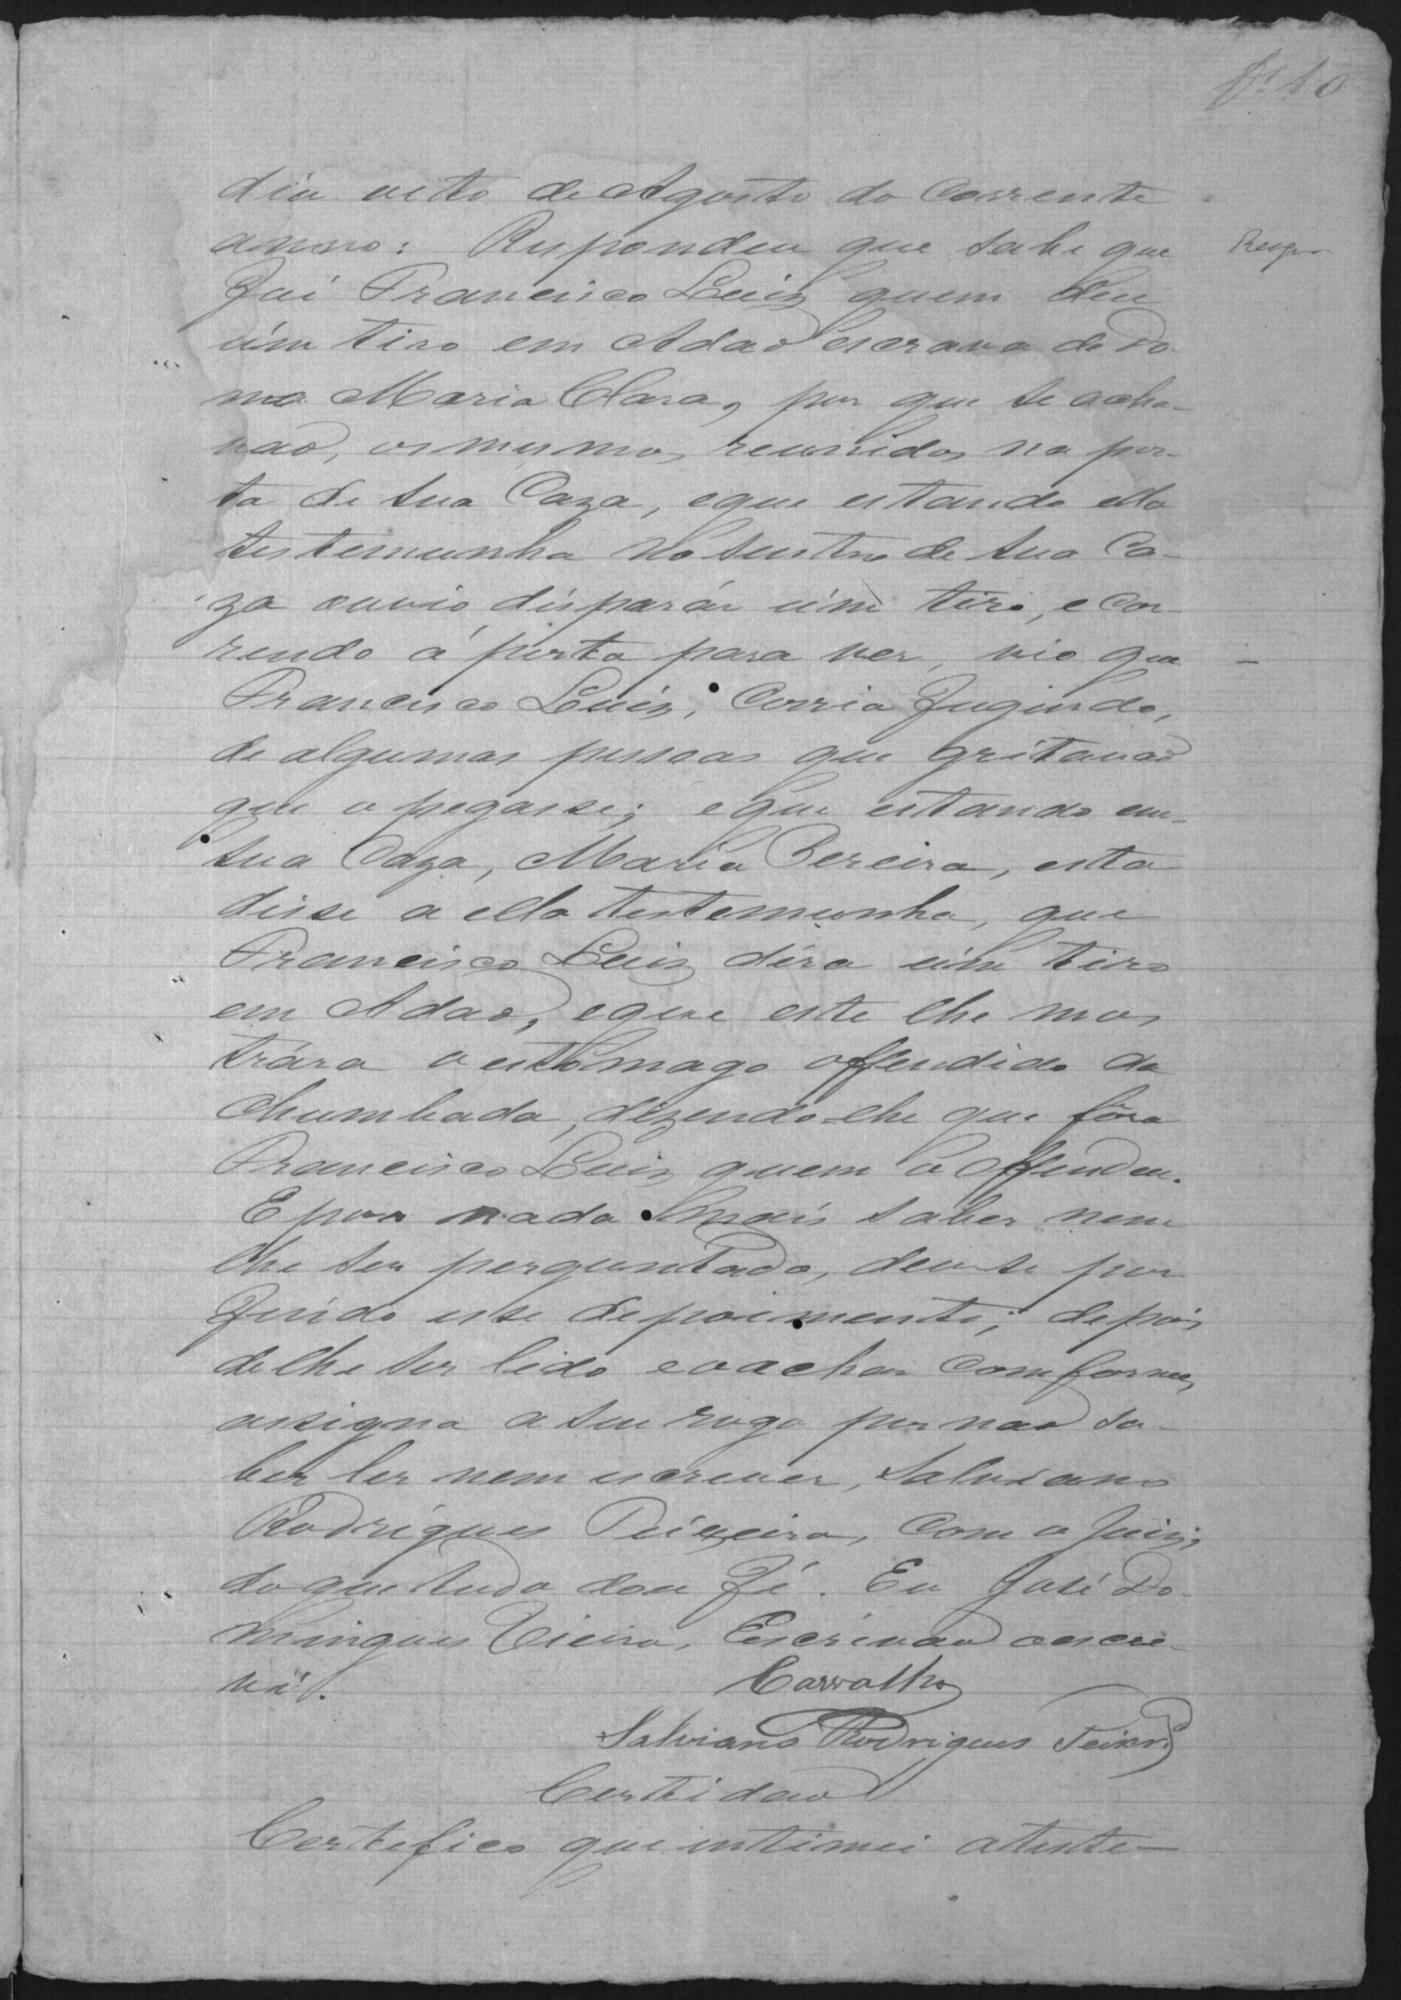 fs 10
dia oito de Agosto do Corrente
anno: Respondeu que sabe que
Respn
foi Francisco Luiz quem deu
úm tiro em Adaõ escravo de Do
na Maria Clara, por que se acha-
vaõ, os mesmos, reunidos na por-
ta de sua Caza, eque estando ella
testemunha no dentro de sua Ca-
za ouvio dispárar úm tiro, e Cor-
rendo á porta para ver, vio que
Francisco Luiz, Corria fugindo,
de algumas pessoas que gritavaõ
que o pegasse; eque estando em
sua Caza, Maria Pereira, esta
disse a ella testemunha, que
Francisco Luiz déra úm tiro
em Adaõ, eque este lhe mos
trára o estomago offendido da
Chumbada, dizendo-lhe que fôra
Francisco Luiz quem o offendeu.
E por nada mais saber nem
lhe ser perguntado, deu-se por
findo este depoimento; depois
delhe ser lido eoachar Comforme,
assigna a seu rogo por naõ sa-
ber ler nem escrever, Salviano
Rodrigues Teixeira, Com o Juiz;
do que tudo dou fé. Eu José Do-
mingues Vieira, Escrivaõ oescre-
vi.
Carvalho
Salviano Rodrigues Teixrª
Certidaõ
Certefico que intimei ateste-